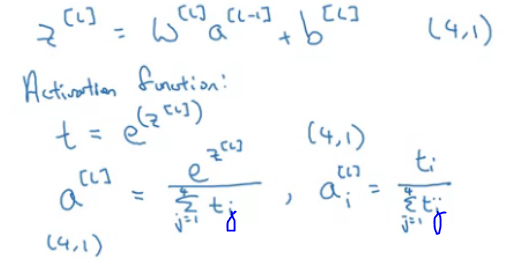 z^[L] = W^[L] a^[L-1] + b^[L] (4,1)
Activation function:
t = e^(z^[L]) (4,1)
a^[L] = e^z^[L] / ∑_{j=1}^{4} t_j , a_i^[L] = t_i / ∑_{j=1}^{4} t_j
(4,1)